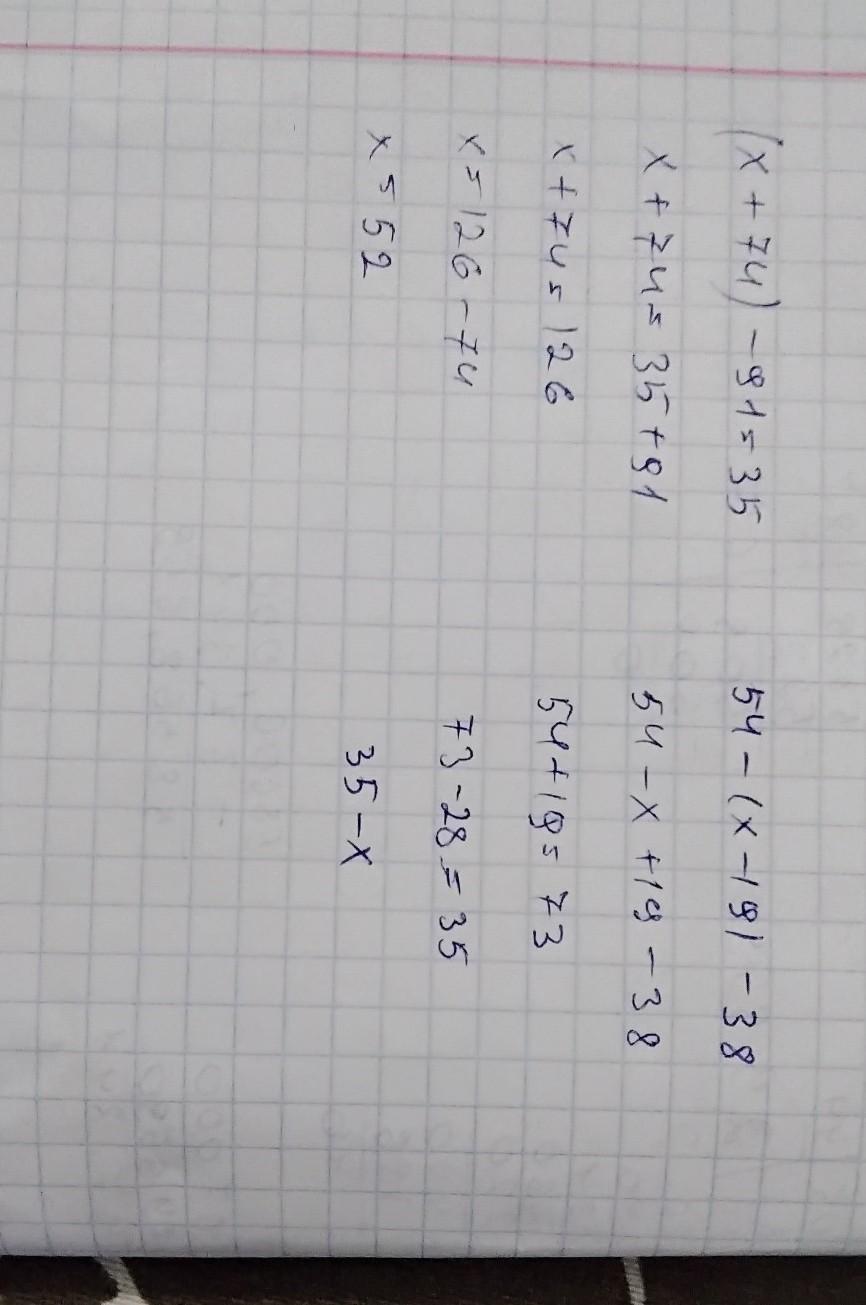 (x + 74) - 91 = 35
x + 74 = 35 + 91
x + 74 = 126
x = 126 - 74
x = 52
54 - (x - 19) - 38
54 - x + 19 - 38
54 + 19 = 73
73 - 28 = 35
35 - x